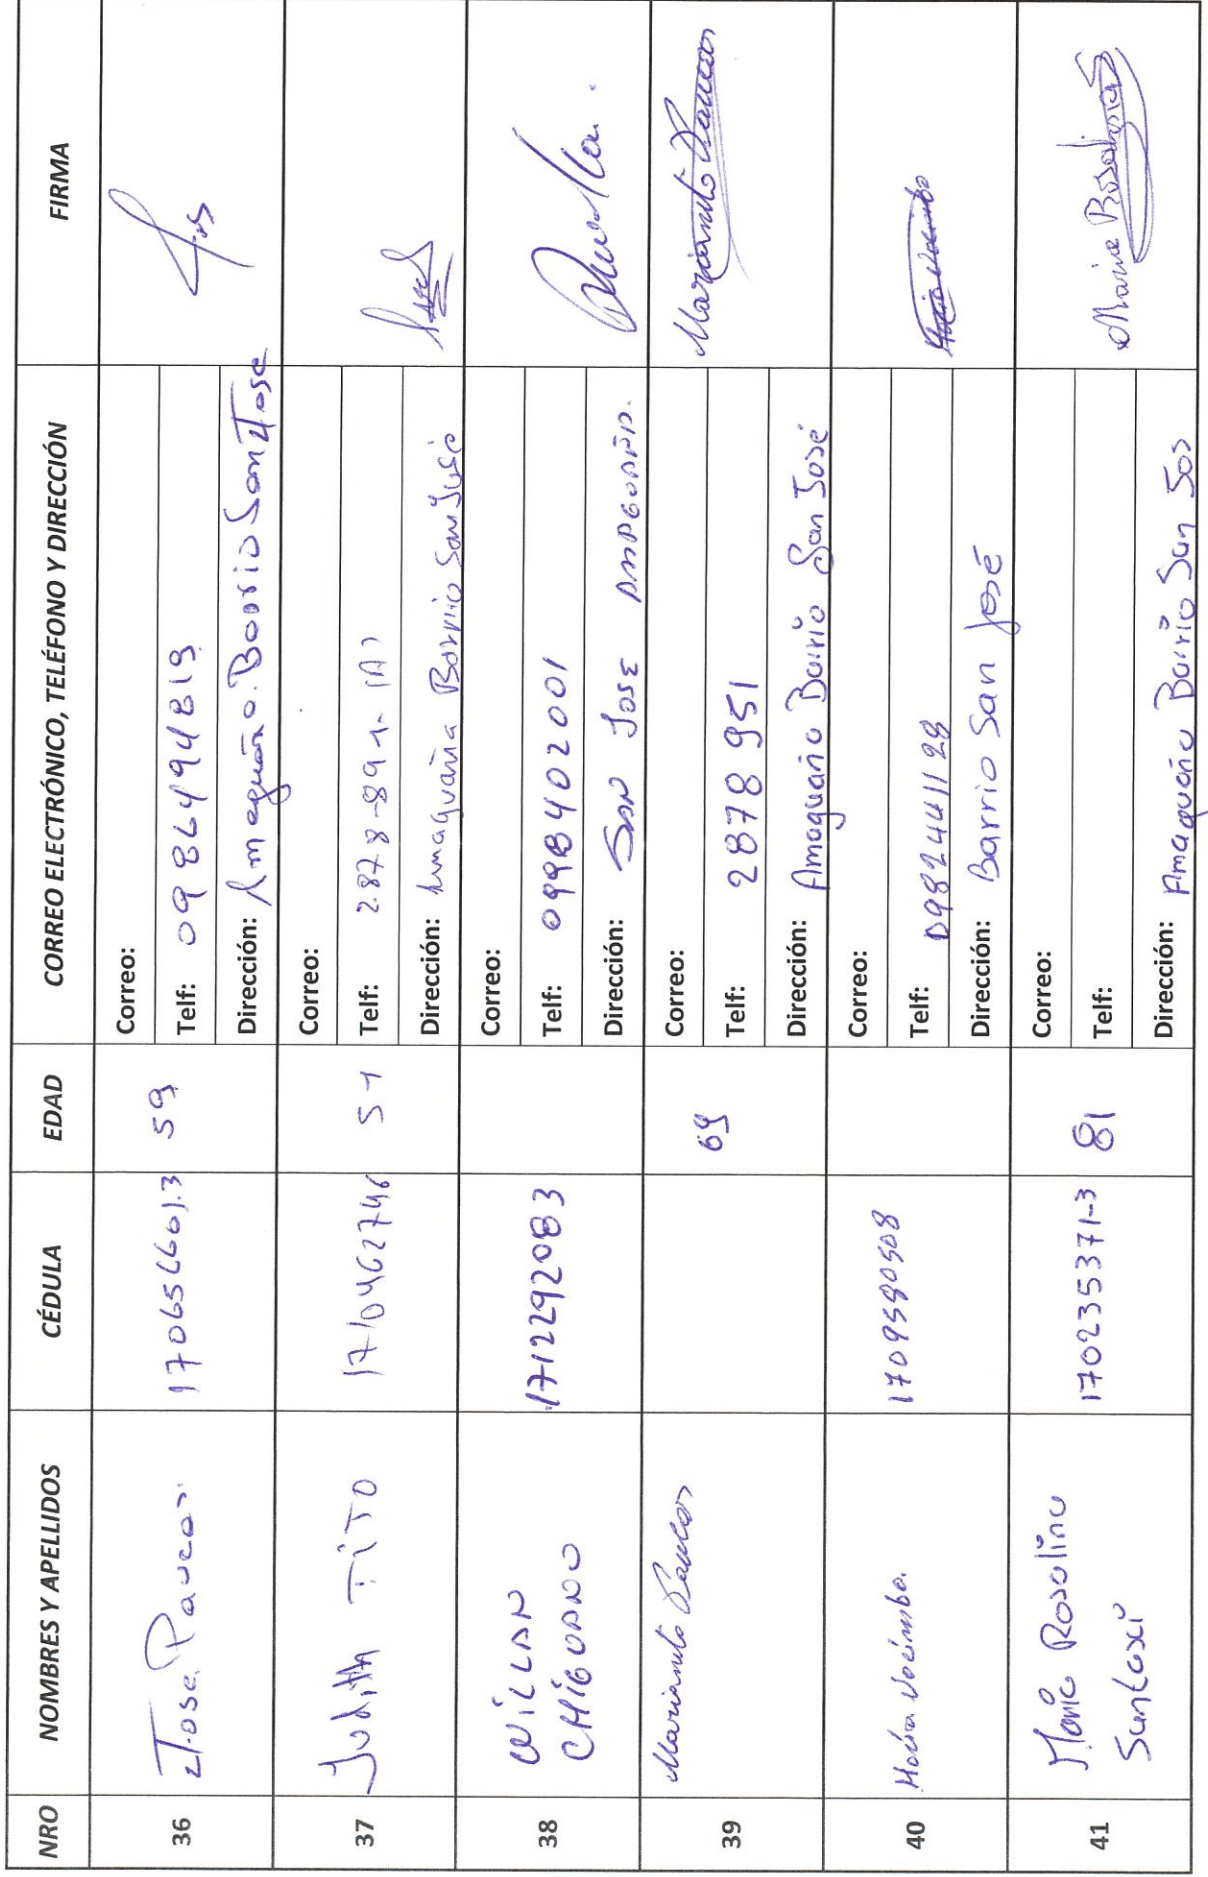 NRO NOMBRES Y APELLIDOS CÉDULA EDAD CORREO ELECTRÓNICO, TELÉFONO Y DIRECCIÓN FIRMA
36 Jose Paucar 170656601.3 59
Correo:
Telf: 0986494819
Dirección: Amaguaña. Barrio San Jose
37 Judith TiTO 1710462746 51
Correo:
Telf: 2878-891-
Dirección: Amaguaña Barrio San José
38 WiLLAN CHiGUANO 1712292083
Correo:
Telf: 0998402001
Dirección: SAN JOSE AMAGUAÑA.
39 Marianito Paucar 69
Correo:
Telf: 2878951
Dirección: Amaguaña Barrio San José
Marianito Paucar
40 1709590508
Correo:
Telf: 0982441129
Dirección: Barrio San José
41 María Rosalina Suntaxi 170235371-3 81
Correo:
Telf:
Dirección: Amaguaña Barrio San Jos
Maria Rosalina